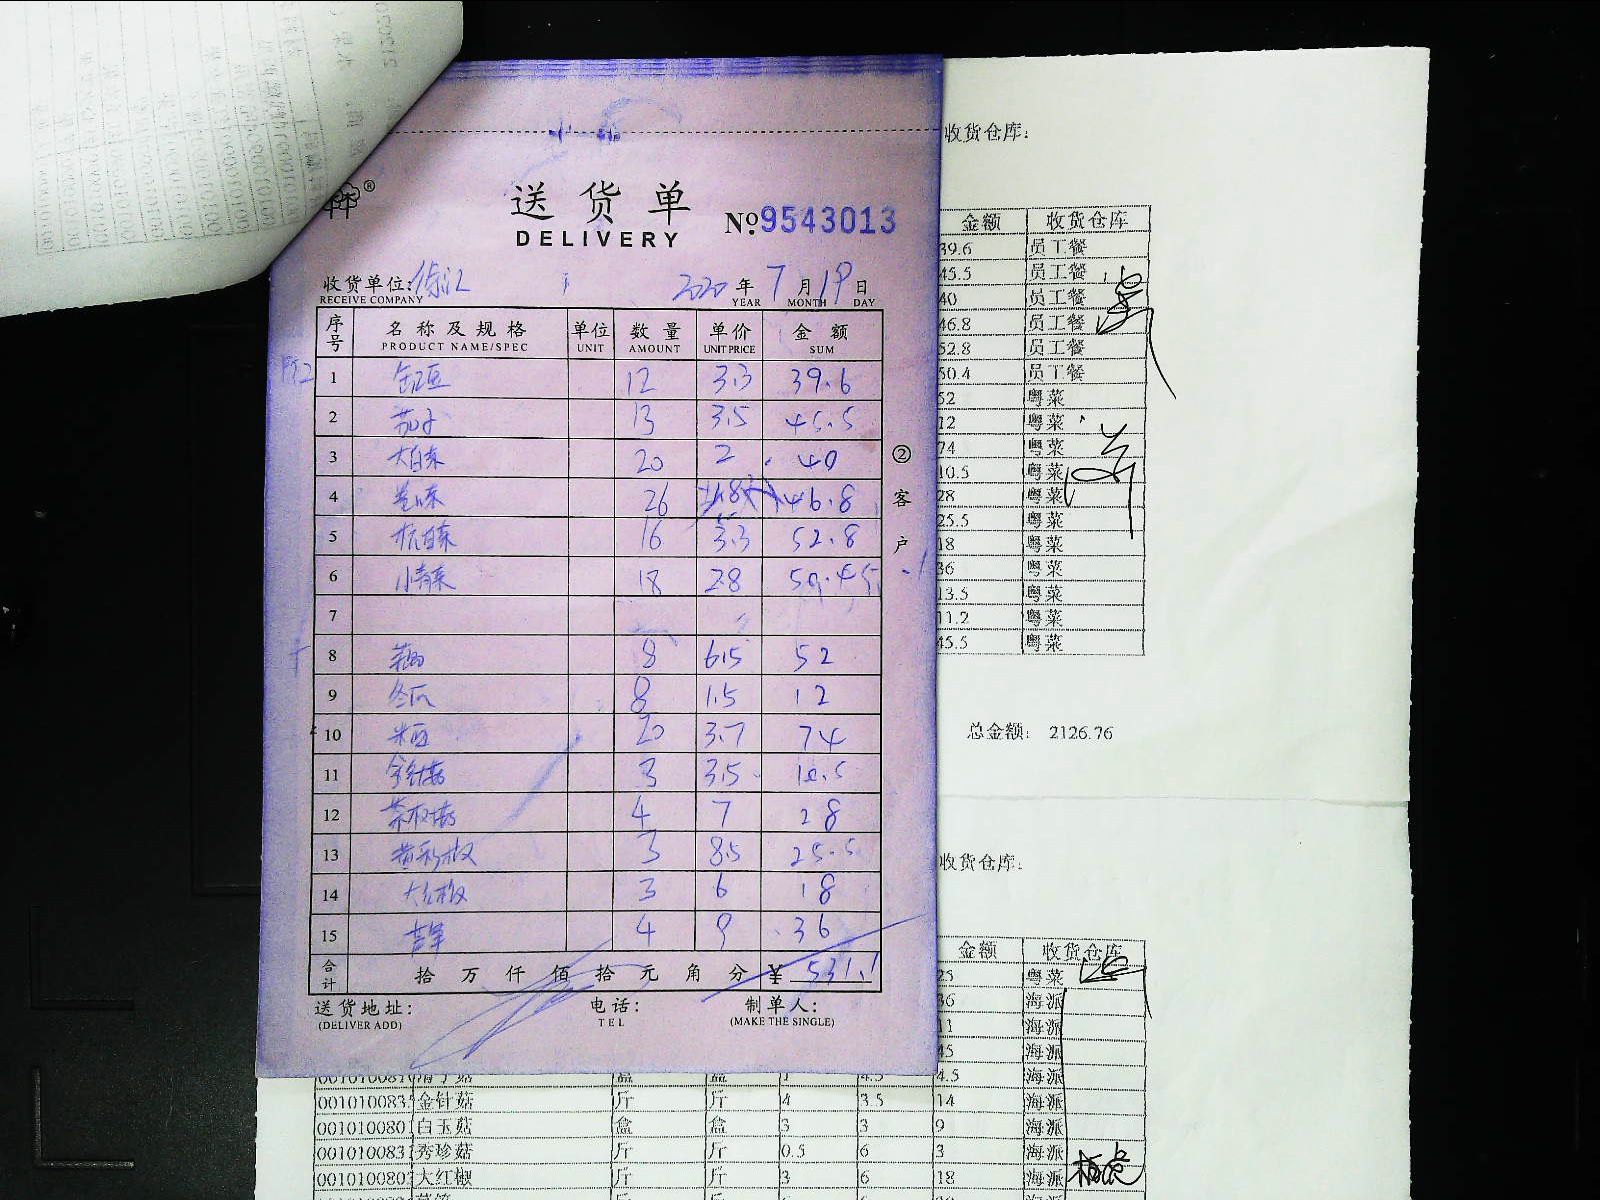 送货单
DELIVERY
№9543013
收货单位:
RECEIVE COMPANY
2020年7月19日
YEAR MONTH DAY
序号 名称及规格 单位 数量 单价 金额
PRODUCT NAME/SPEC UNIT AMOUNT UNIT PRICE SUM
1 12 3.3 39.6
2 茄子 13 3.5 45.5
3 大白菜 20 2 40
4 26 1.8 46.8
5 杭白菜 16 3.3 52.8
6 小青菜 18 2.8 50.4
7
8 8 6.5 52
9 冬瓜 8 1.5 12
10 20 3.7 74
11 金针菇 3 3.5 10.5
12 茶树菇 4 7 28
13 黄彩椒 3 8.5 25.5
14 大红椒 3 6 18
15 4 9 36
合计 拾万仟佰拾元角分 ¥ 531.1
送货地址: 电话: 制单人:
(DELIVER ADD) TEL (MAKE THE SINGLE)
②客户
收货仓库:
金额 收货仓库
39.6 员工餐
45.5 员工餐
40 员工餐
46.8 员工餐
52.8 员工餐
50.4 员工餐
52 粤菜
12 粤菜
74 粤菜
10.5 粤菜
28 粤菜
25.5 粤菜
18 粤菜
36 粤菜
13.5 粤菜
11.2 粤菜
45.5 粤菜
总金额: 2126.76
收货仓库:
金额 收货仓库
25 粤菜
36 海派
11 海派
45 海派
盒 盒 1 4.5 4.5 海派
001010083 金针菇 斤 斤 4 3.5 14 海派
001010080 白玉菇 盒 盒 3 3 9 海派
001010083 秀珍菇 斤 斤 0.5 6 3 海派
001010080 大红椒 斤 斤 3 6 18 海派